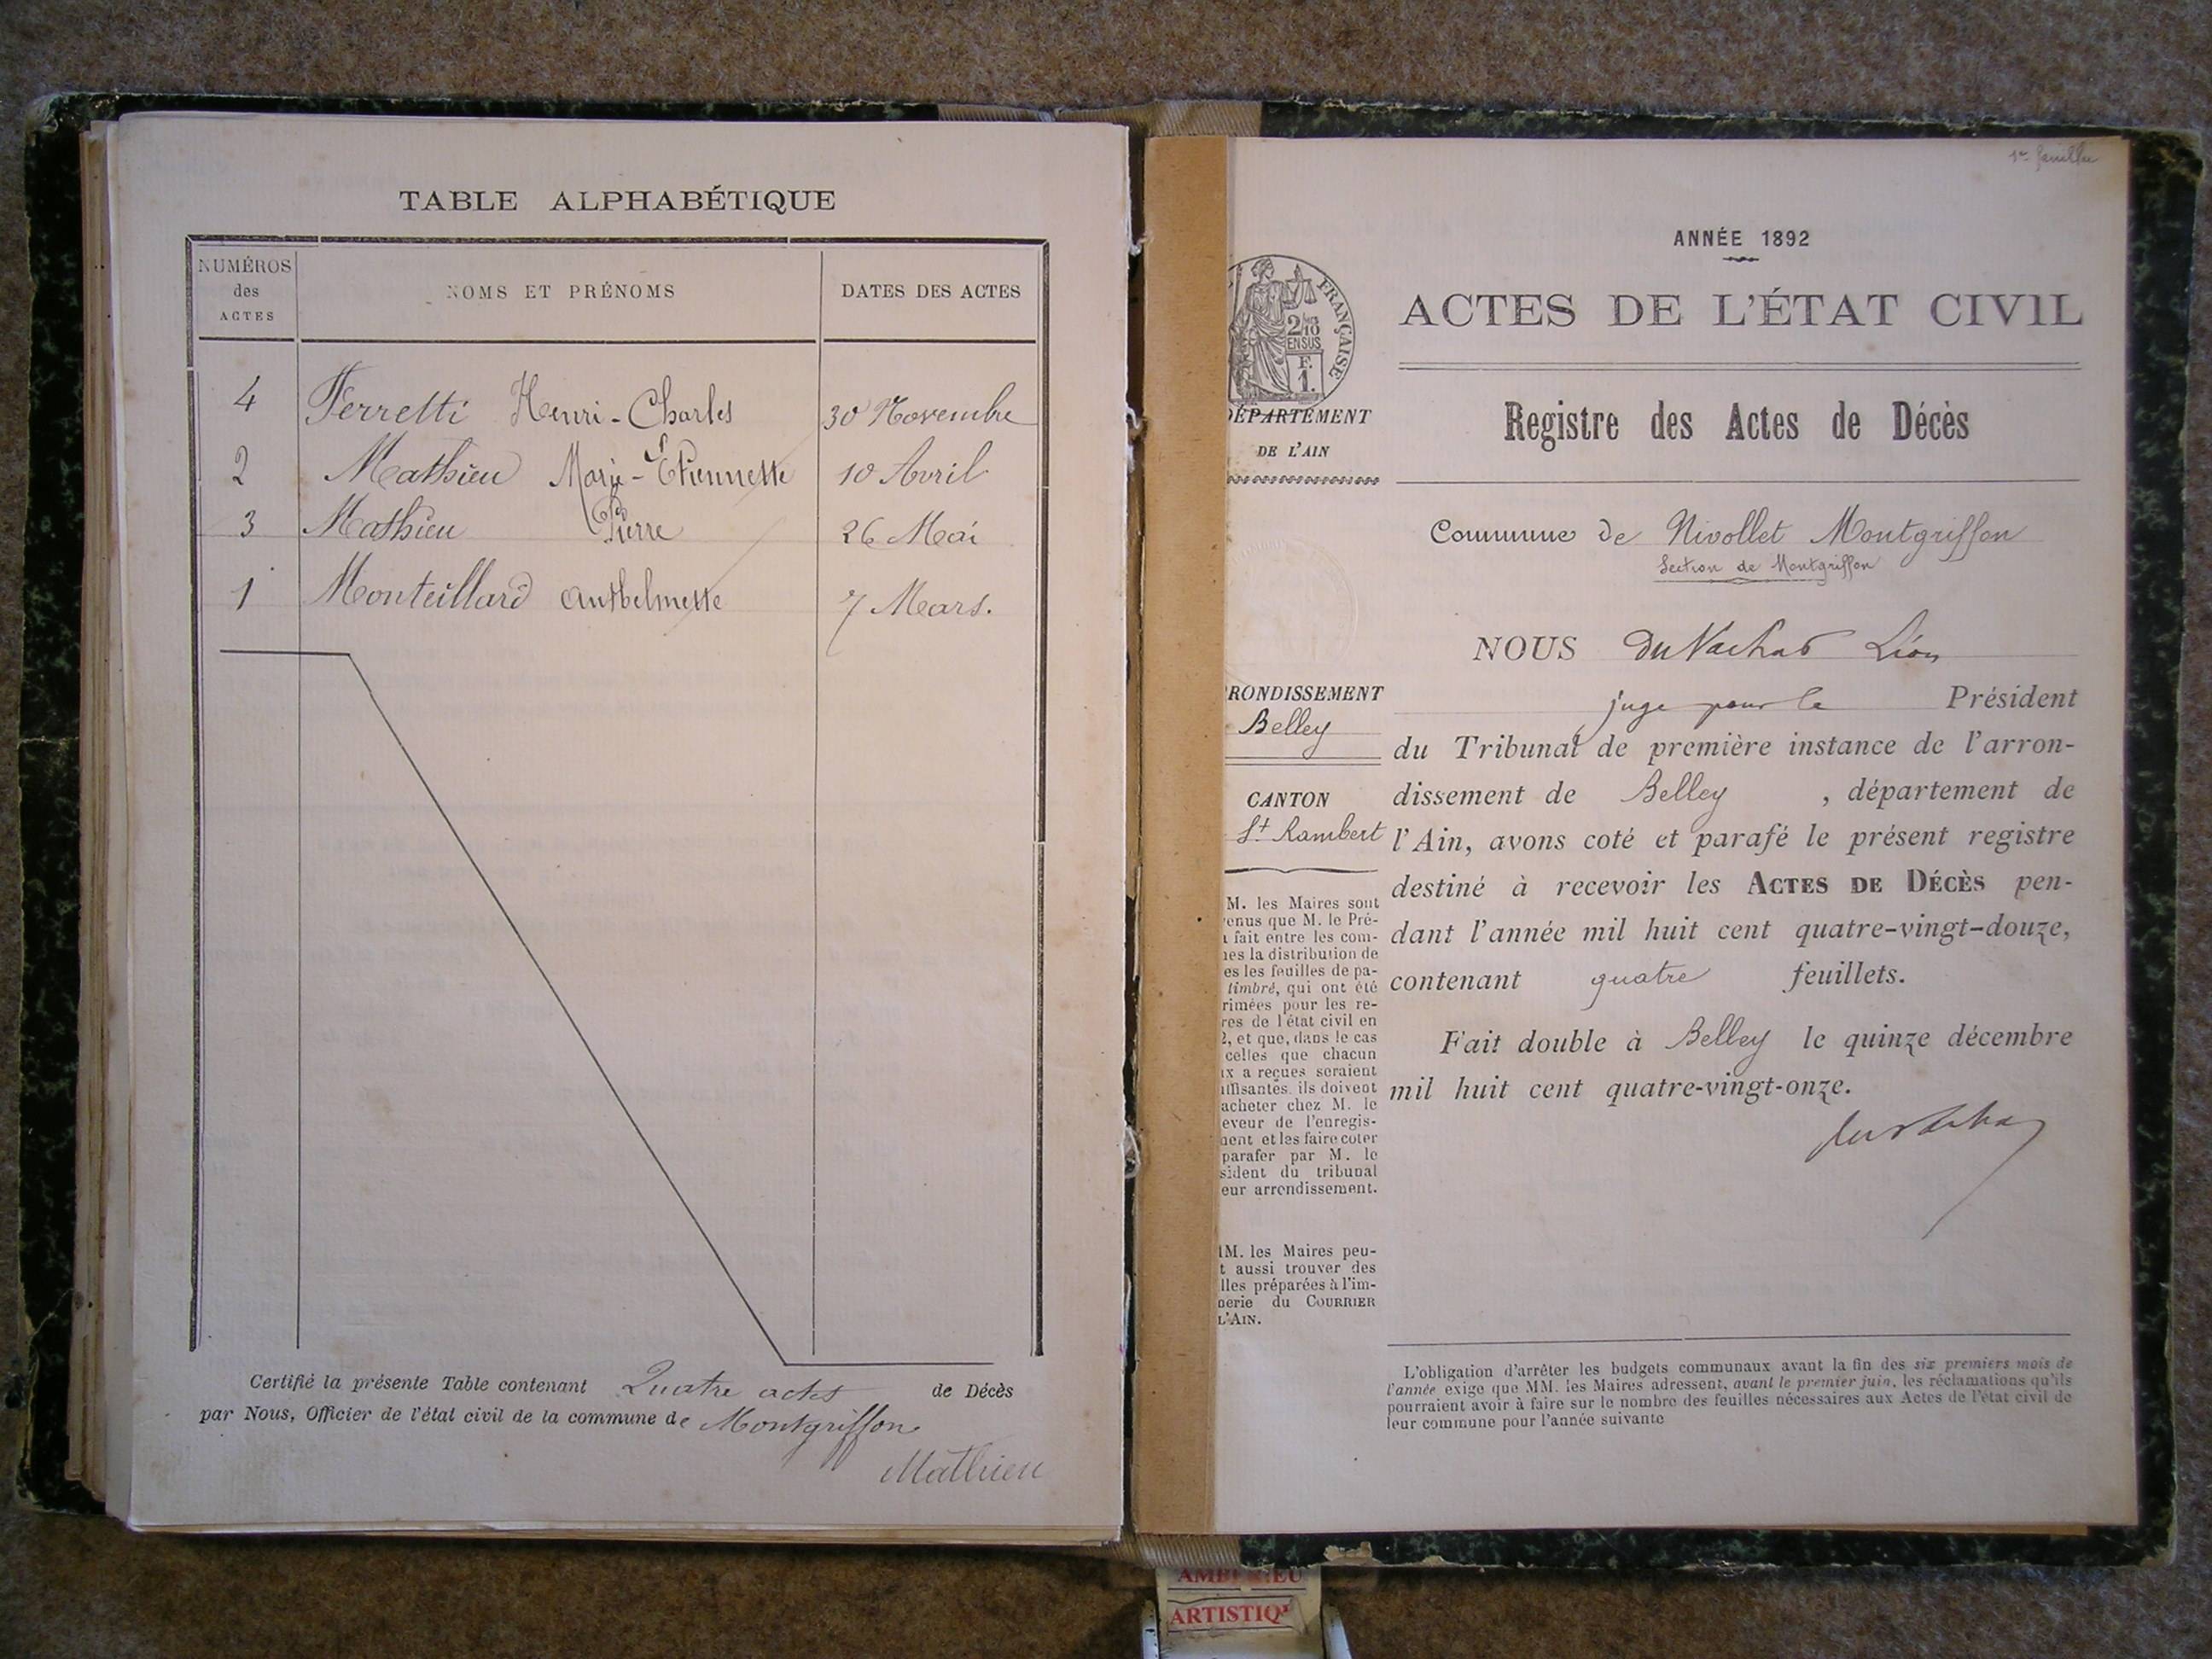 TABLE ALPHABÉTIQUE
NUMÉROS
des
ACTES
NOMS ET PRÉNOMS
DATES DES ACTES
4 Ferretti Henri-Charles 30 Novembre
2 Mathieu Marie-Etiennette 10 Avril
3 Mathieu Pierre 26 Mai
1 Monteillard Anthelmette 7 Mars.
Certifié la présente Table contenant Quatre actes de Décès
par Nous, Officier de l'état civil de la commune de Montgriffon
Mathieu
ANNÉE 1892
ACTES DE L'ÉTAT CIVIL
Registre des Actes de Décès
Commune de Nivollet Montgriffon
Section de Montgriffon
NOUS
Léon
juge pour le Président
du Tribunal de première instance de l'arron-
dissement de Belley , département de
l'Ain, avons coté et parafé le présent registre
destiné à recevoir les ACTES DE DÉCÈS pen-
dant l'année mil huit cent quatre-vingt-douze,
contenant quatre feuillets.
Fait double à Belley le quinze décembre
mil huit cent quatre-vingt-onze.
L'obligation d'arrêter les budgets communaux avant la fin des six premiers mois de
l'année exige que MM. les Maires adressent, avant le premier juin, les réclamations qu'ils
pourraient avoir à faire sur le nombre des feuilles nécessaires aux Actes de l'état civil de
leur commune pour l'année suivante
FRANÇAISE
2/10
EN SUS
F.
1.
DÉPARTEMENT
DE L'AIN
RONDISSEMENT
Belley
CANTON
St Rambert
M. les Maires sont
enus que M. le Pré-
fait entre les com-
nes la distribution de
es les feuilles de pa-
timbré, qui ont été
rimées pour les re-
res de l'état civil en
2, et que, dans le cas
celles que chacun
ux a reçues seraient
uffisantes, ils doivent
acheter chez M. le
eveur de l'enregis-
ment et les faire coter
parafer par M. le
sident du tribunal
eur arrondissement.
MM. les Maires peu-
t aussi trouver des
lles préparées à l'im-
merie du COURRIER
L'AIN.
ARTISTIQ